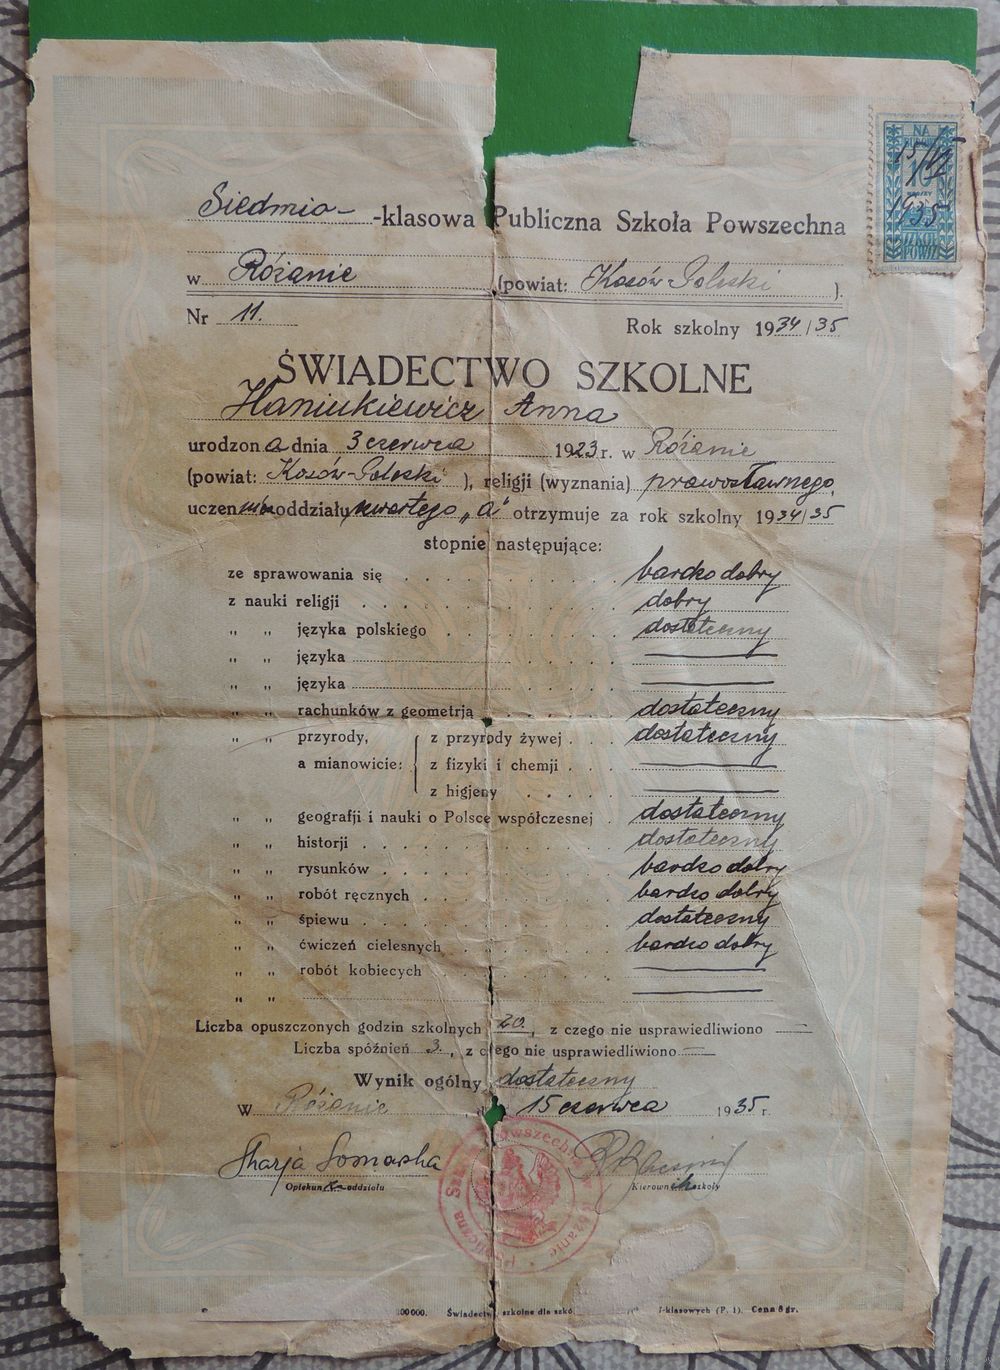 NA
15/VI
10
1935
SZKÓŁ
POWSZ.
Siedmio- -klasowa Publiczna Szkoła Powszechna
w Różanie (powiat: Kosów-Poleski ).
Nr 11. Rok szkolny 1934/35
ŚWIADECTWO SZKOLNE
Haniukiewicz Anna
urodzona dnia 3 czerwca 1923 r. w Różanie
(powiat: Kosów-Poleski ), religji (wyznania) prawosławnego,
uczennica oddziału czwartego „a" otrzymuje za rok szkolny 1934/35
stopnie następujące:
ze sprawowania się . . . bardzo dobry
z nauki religji . . . dobry
„ „ języka polskiego . . . dostateczny
„ „ języka . . . —
„ „ języka . . . —
„ „ rachunków z geometrją . . . dostateczny
„ „ przyrody, z przyrody żywej . . . dostateczny
a mianowicie: z fizyki i chemji . . . —
z higjeny . . . —
„ „ geografji i nauki o Polsce współczesnej . dostateczny
„ „ historji . . . dostateczny
„ „ rysunków . . . bardzo dobry
„ „ robót ręcznych . . . bardzo dobry
„ „ śpiewu . . . dostateczny
„ „ ćwiczeń cielesnych . . . bardzo dobry
„ „ robót kobiecych . . . —
„ „ —
Liczba opuszczonych godzin szkolnych 20, z czego nie usprawiedliwiono —
Liczba spóźnień 3, z czego nie usprawiedliwiono —
Wynik ogólny dostateczny
W Różanie 15 czerwca 1935 r.
Opiekun-ka oddziału Kierownik szkoły
Publiczna Szkoła Powszechna w Różanie
00000. Świadectwo szkolne dla szkó -klasowych (P. 1). Cena 8 gr.